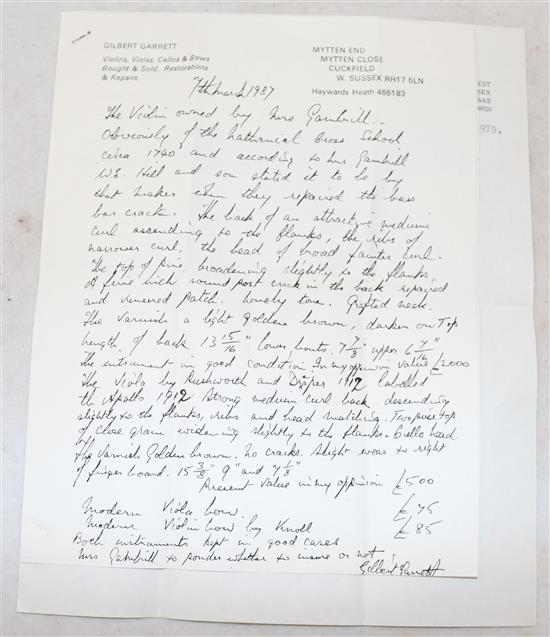 GILBERT GARRETT
Violins, Violas, Cellos & Bows
Bought & Sold. Restorations
& Repairs.
MYTTEN END
MYTTEN CLOSE
CUCKFIELD
W. SUSSEX RH17 5LN
Haywards Heath 456183
7th March 1987
The Violin owned by Mrs Gambrill :-
Obviously of the Nathanical Cross School
circa 1740 and according to Mrs Gambrill
W.E. Hill and son stated it to be by
that maker when they repaired the bass
bar crack. The back of an attractive medium
curl ascending to the flanks, the ribs of
narrower curl, the head of broad fainter curl.
The top of pine broadening slightly to the flanks
A five inch sound post crack in the back repaired
and veneered patch. Lovely tone. Grafted neck.
The Varnish a light golden brown, darker on Top
length of back 13 15/16" lower bouts. 7 7/8" upper 6 7/16"
The intrument in good condition. In my oppinion value £2000
The Viola by Rushworth and Draper 1912 labelled
the Apollo 1912 Strong medium curl back descending
slightly to the flanks, ribs and head matching. Two piece top
of close grain widening slightly to the flanks. Cello head
The Varnish Golden brown. No cracks. Slight wear to right
of finger board. 15 3/8" 9" and 7 1/8"
Present value in my oppinion £500
Modern Viola bow. £75
Modern Violin bow by Knoll £85
Both instruments kept in good cases
Mrs Gambrill to ponder whether to insure or not.
Gilbert Garrett
EST
SEX
979.